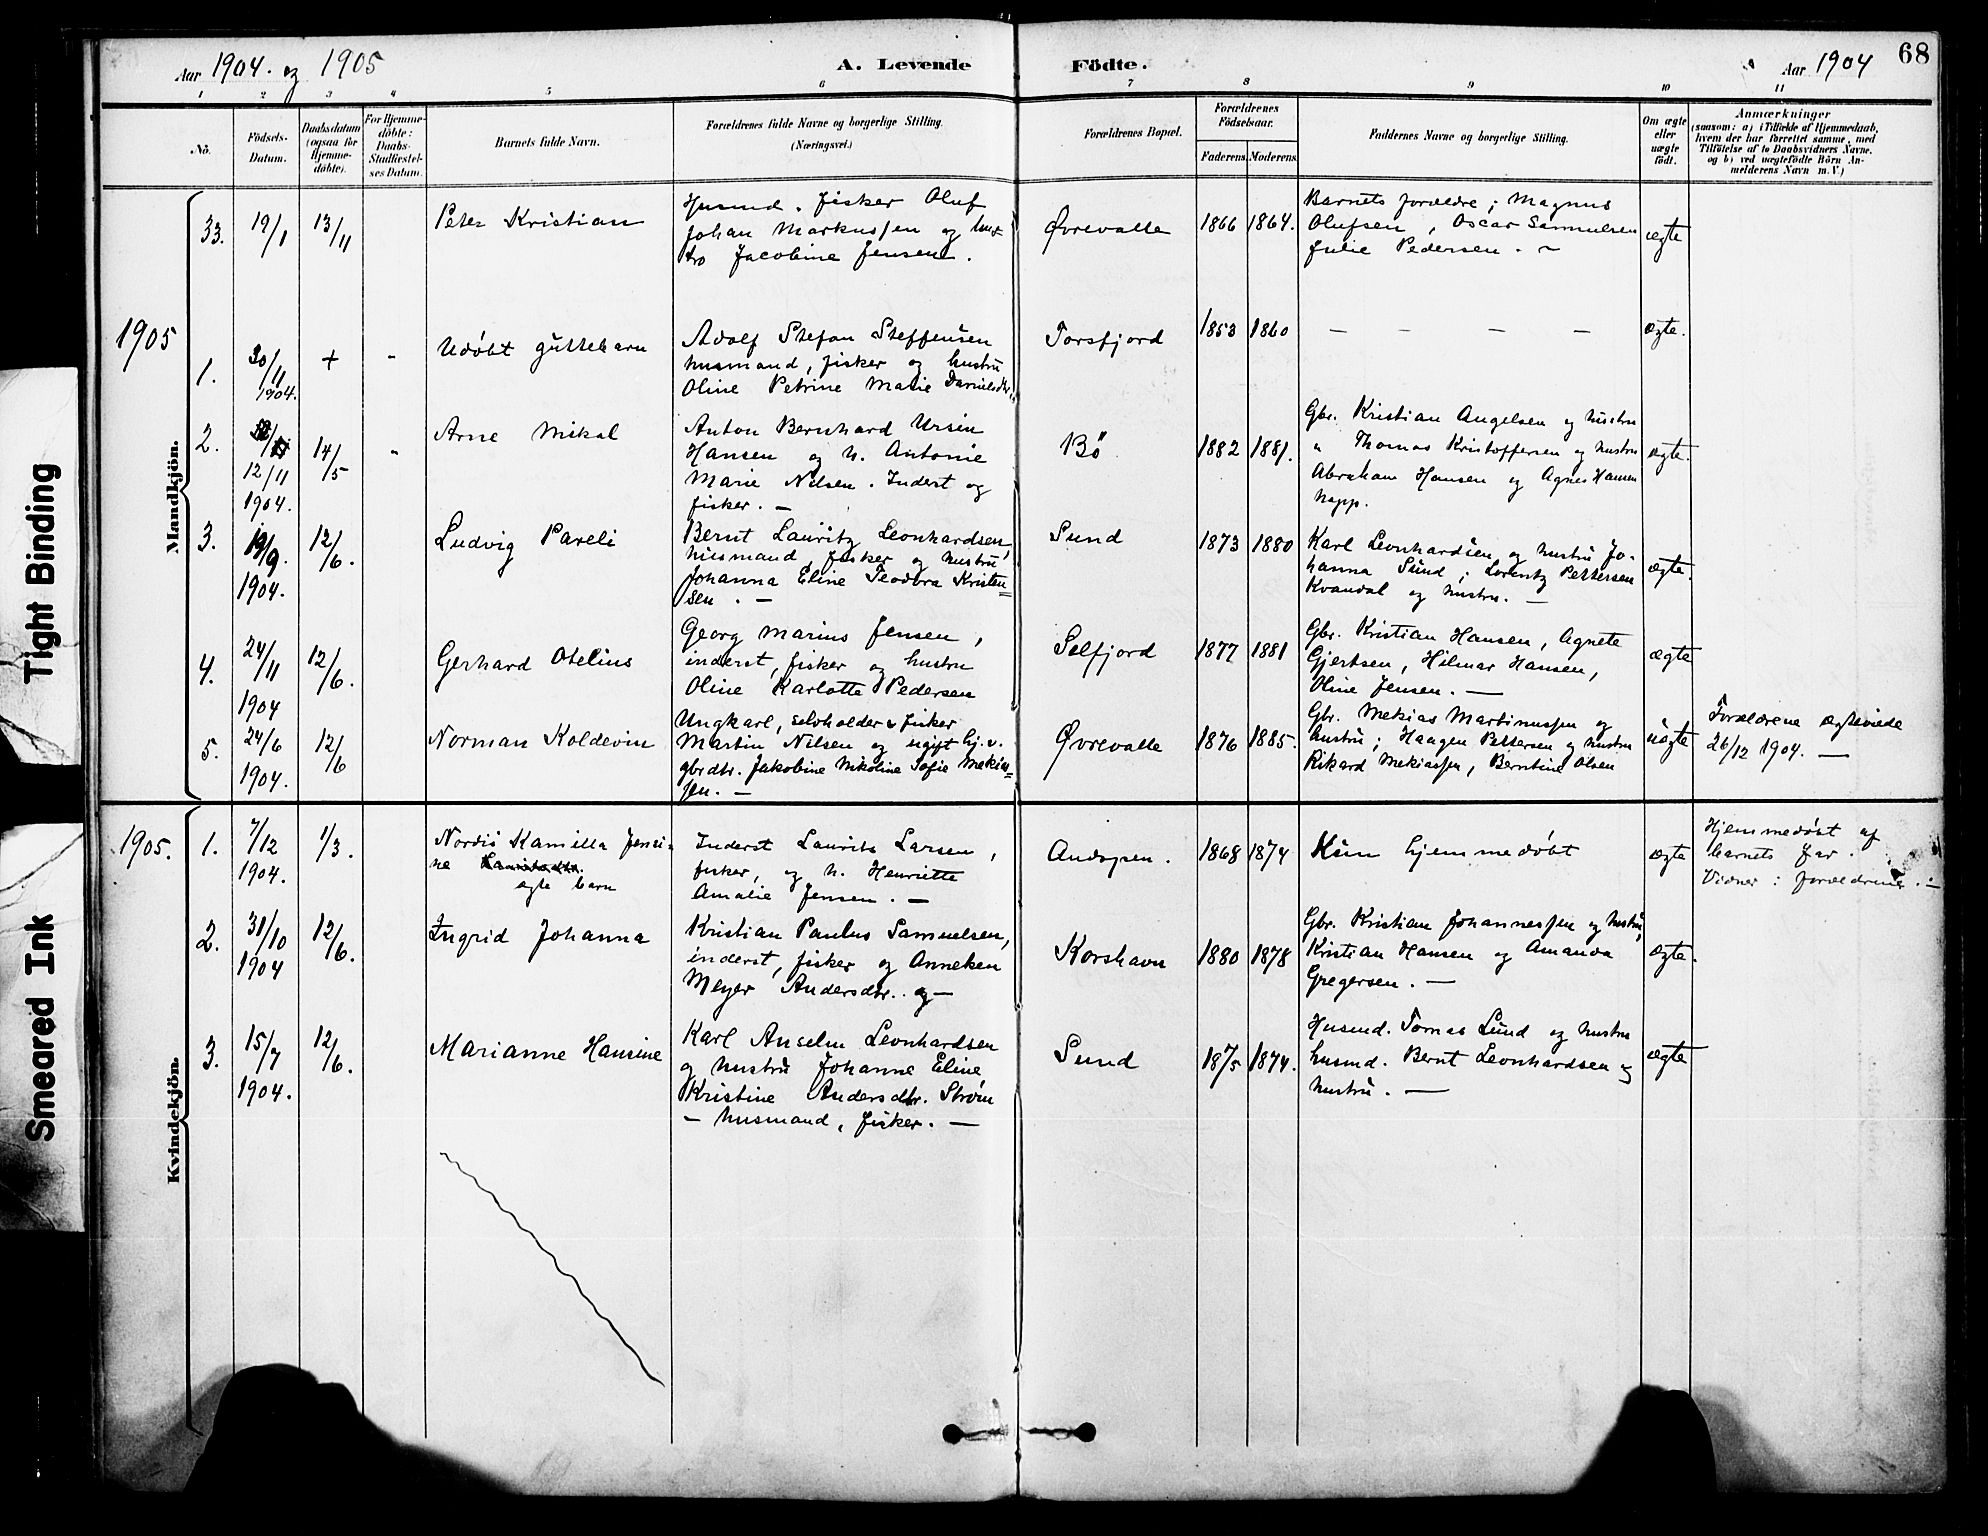 Aar 1904. og 1905
A. Levende
Födte.
Aar 1904
68
1 2 3 4 5 6 7 8 9 10 11
Nö.
Födsels-
Datum.
Daabsdatum
(ogsaa for
Hjemme-
döbte).
For Hjemme-
döbte:
Daabs-
Stadfæstel-
ses Datum.
Barnets fulde Navn.
Forældrenes fulde Navne og borgerlige Stilling.
(Næringsvei.)
Forældrenes Bopæl.
Forældrenes
Födselsaar.
Faderens. Moderens.
Faddernes Navne og borgerlige Stilling.
Om ægte
eller
uægte
födt.
Anmærkninger
(saasom: a) i Tilfælde af Hjemmedaab,
hvem der har forrettet samme, med
Tilföielse af to Daabsvidners Navne.
og b) ved uægtefödte Börn An-
melderens Navn m. V.)
Mandkjön.
33.
19/1
13/11
Peter Kristian
Husmd. fisker Oluf
Johan Markussen og hus-
tro Jacobine Jensen.
Øvrevalle
1866
1864.
Barnets forældre; Magnus
Olufsen, Oscar Samuelsen
Julie Pedersen. ~
ægte
1905
1.
30/11
1904.
+
-
Udöbt guttebarn
Adolf Stefan Steffensen
husmand, fisker og hustru
Oline Petrine Marie Danielsdtr.
Torsfjord
1853
1860
— — — —
ægte.
2.
12/11
1904.
14/5
"
Arne Mikal
Anton Bernhard Ursin
Hansen og h. Antonie
Marie Nilsen. Inderst og
fisker. —
Bö
1882
1881.
Gbr. Kristian Angelsen og hustru
" Thomas Kristoffersen og hustru
Abraham Hansen og Agnes Hansen
Napp.
ægte.
3.
19/9.
1904.
12/6.
Ludvig Pareli
Bernt Lauritz Leonhardsen,
husmand, fisker og hustru
Johanna Eline Teodora Kristen=
sen. —
Sund
1873
1880
Karl Leonhardsen og hustru Jo-
hanna Sund; Lorentz Pettersen
Kvandal og hustru. —
ægte.
4.
24/11
1904
12/6.
Gerhard Otelius
Georg Marius Jensen,
inderst, fisker og hustru
Oline Karlotte Pedersen
Selfjord
1877
1881
Gbr. Kristian Hansen, Agnete
Gjertsen, Hilmar Hansen,
Oline Jensen. —
ægte
5.
24/6
1904.
12/6
Norman Koldevin
Ungkarl, selvholder & fisker
Martin Nilsen og ugift hj. v.
gbrdtr. Jakobine Nikoline Sofie Mekias=
sen. —
Øvrevalle
1876
1885.
Gbr. Mekias Martinussen og
hustru; Haagen Pettersen og hustru
Rikard Mekiassen, Berntine Olsen
uægte
Forældrene ægteviede
26/12 1904. —
Kvindekjön.
1905.
1.
7/12
1904.
1/3.
Nordis Kamilla Jensi-
ne
egte barn
Inderst Laurits Larsen,
fisker, og h. Henriette
Amalie Jensen. —
Andopsen.
1868
1874
Kun hjemmedöbt
ægte
Hjemmedöbt af
barnets far.
Vidner: forældrene. —
2.
31/10
1904
12/6.
Ingrid Johanna
Kristian Paulus Samuelsen,
inderst, fisker og Anneken
Meyer Andersdtr. og —
Korshavn
1880
1878
Gbr. Kristian Johannessen og hustru,
Kristian Hansen og Amanda
Gregersen. —
ægte.
3.
15/7
1904.
12/6.
Marianne Hansine
Karl Anselm Leonhardsen
og hustru Johanne Eline
Kristine Andersdtr. Ström
— husmand, fisker. —
Sund
1875
1874.
Husmd. Tomas Lund og hustru
husmd. Bernt Leonhardsen og
hustru. —
ægte
Tight Binding
Smeared Ink